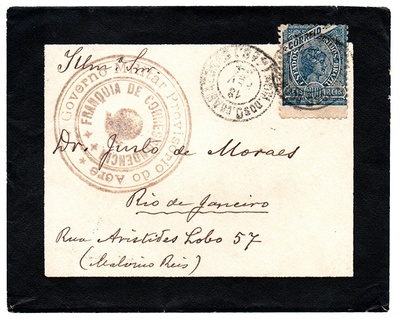 Illmo Snr
Governo Militar Provisorio do Acre
FRANQUIA DE CORRESPONDENCIA
CORREIO
REIS
Dr. Justo de Moraes
Rio de Janeiro
Rua Aristides Lobo 57
(Malvino Reis)